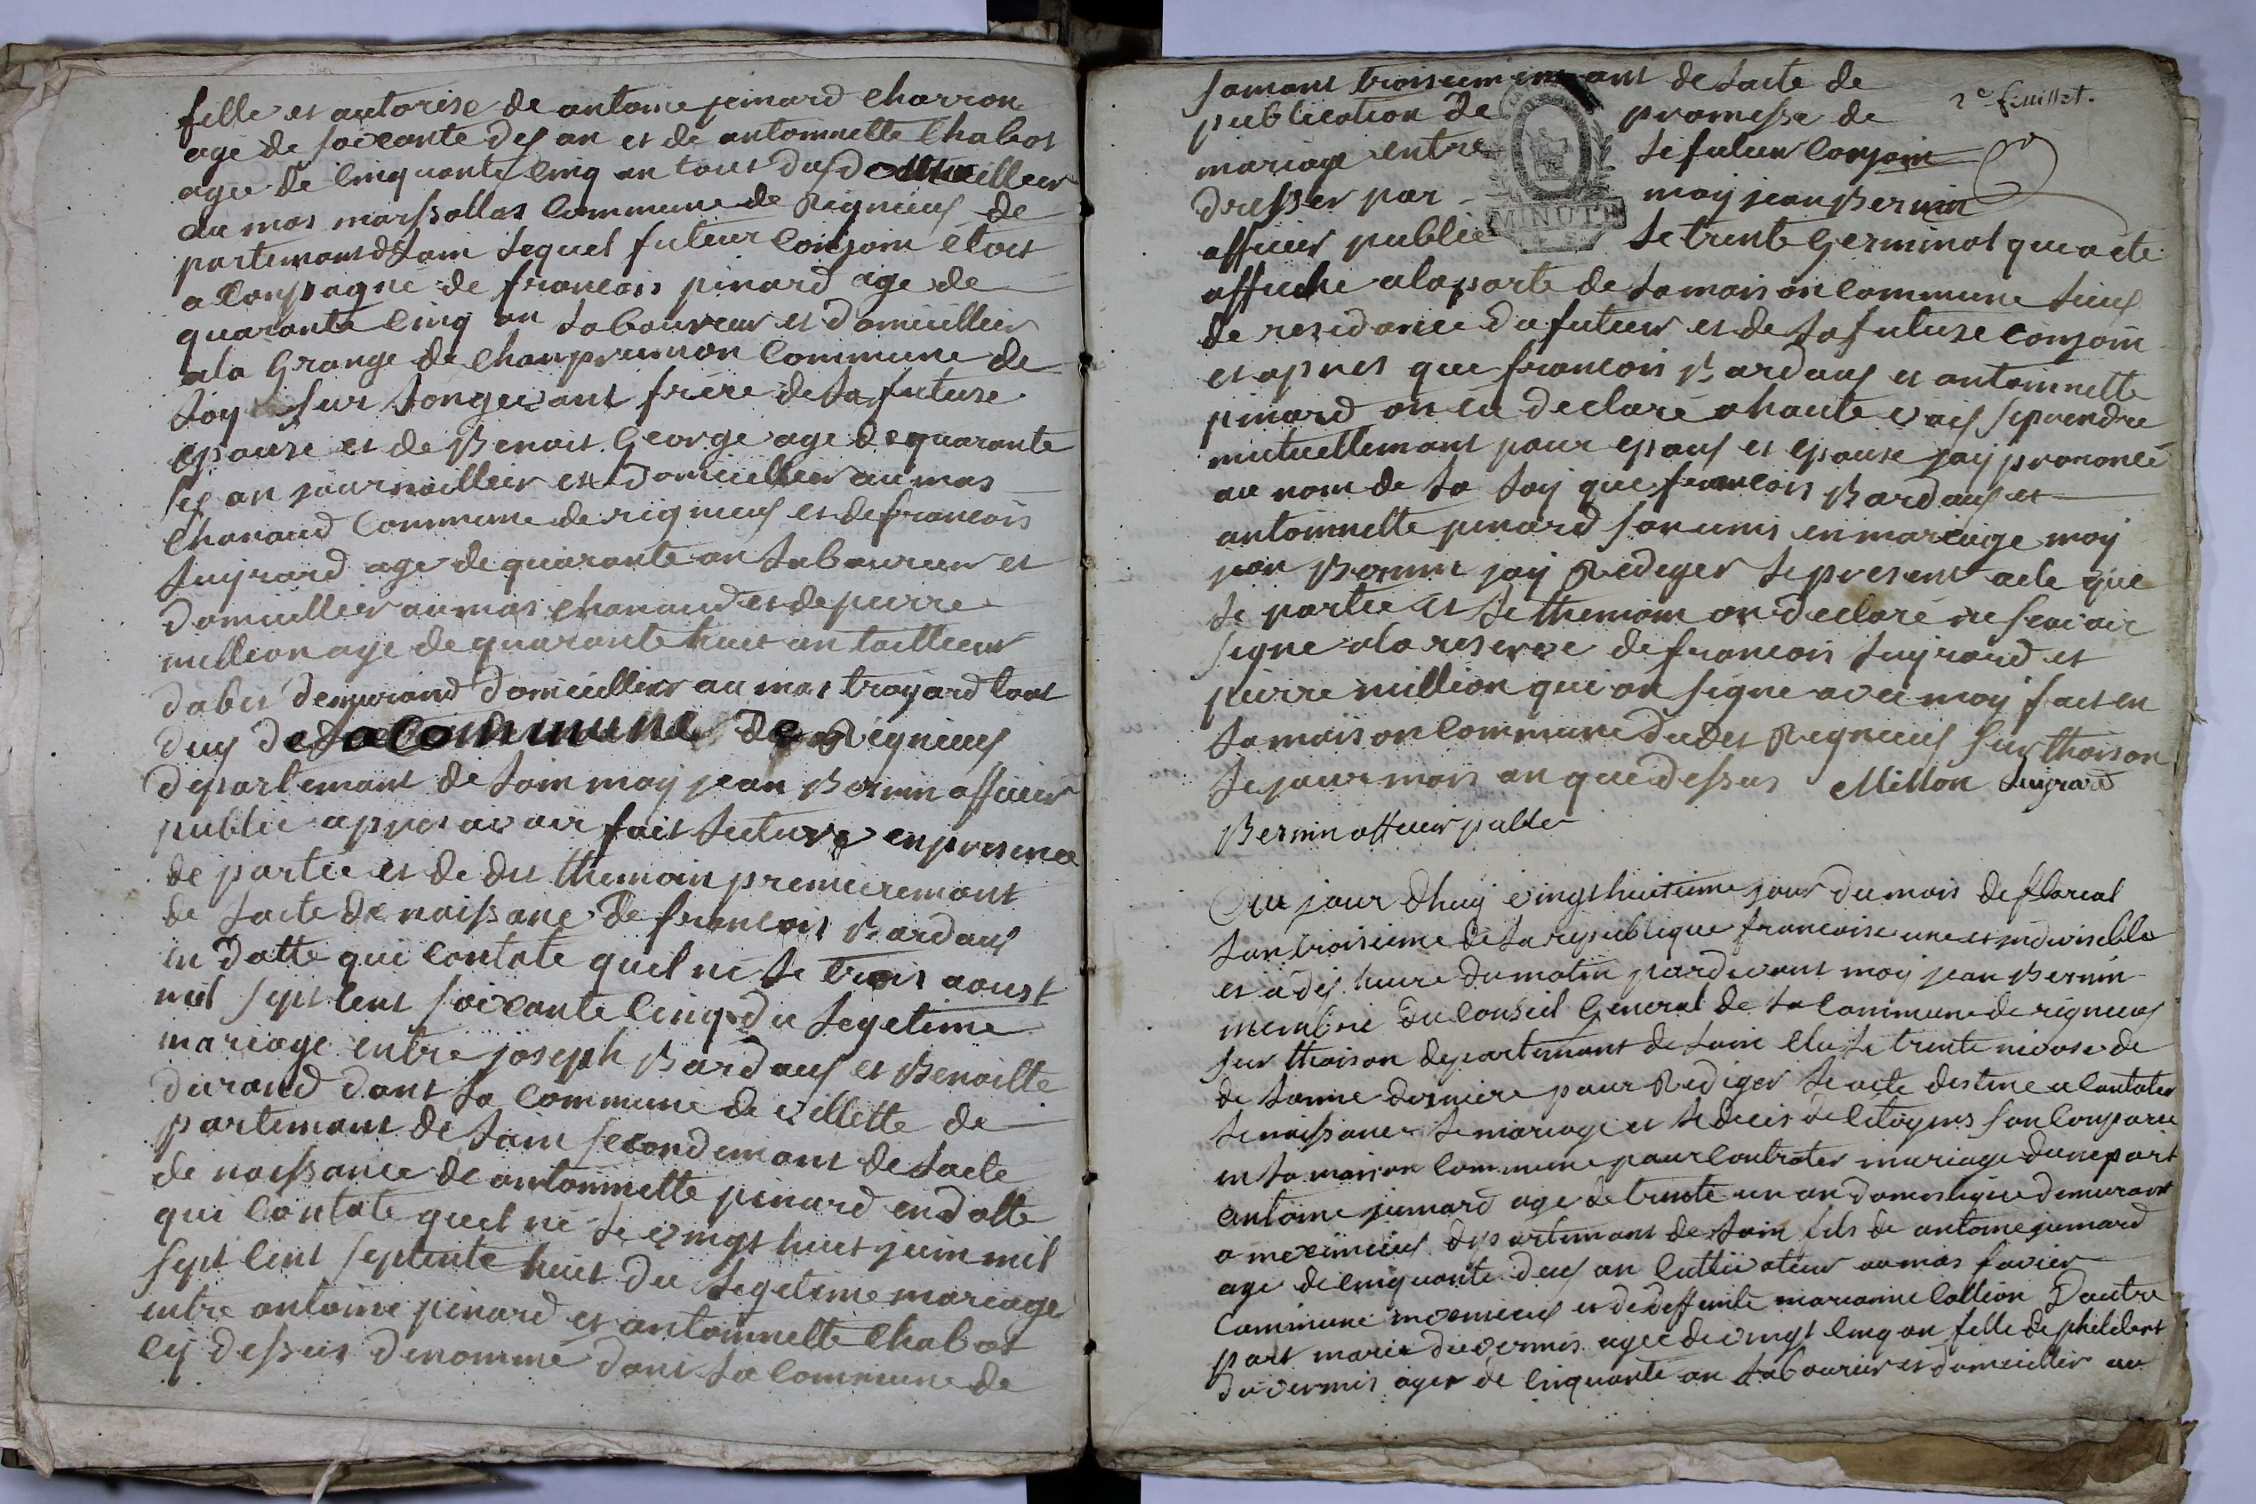 fille et autorise de antoine pinard charron
age de soixante dix an et de antoinnette Chabot
agee de Cinquante Cinq an tout dus domicillier
au mas marssollas Commune de Rigneux de
partemant de Lain Lequel futeur Conjoin etoit
aConpagné de francois pinard age de
quarante Cinq an Laboureur et domicillier
ala Grange de Chanprumon Commune de
Loye sur Longevant frere de La future
epouse et de Benoit George age de quarante
six an journaillier et domicillier au mas
Chanaud Commune de rigneux et de francois
Luyrard age de quarante an Laboureur et
domicillier au mas chanaud et de pierre
million age de quarante huit an tailleur
dabit demurand domicillier au mas troyard tout
dus de La Commune de Rigneux
departemant de Lain moy jean Bernin officier
public apres avoir fait Lecture en presence
de partie et de dit themoin premieremant
de Lacte de naissance de francois Bardaux
en datte qui Contate quil ne Le trois aoust
mil sept Cent soixante Cinq du Legetime
mariage entre joseph Bardaux et Benoitte
durand dans La Commune de villette de
partemant de Lain secondemant de Lacte
de naissance de antoinnette pinard en datte
qui Contate quel né Le vingt huit juin mil
sept Cent septente huit du Legetime mariage
entre antoine pinard et antoinnette Chabot
Cy dessus denommé dans La Commune de
2e feuillet.
samans troisiemement de Lacte de
publication de promesse de
mariage entre Le futeur Conjoin
dresser par moy jean Bernin
officier public Le trente Germinal qui a ete
affiche a la porte de La maison Commune Lieux
de residance du futeur et de La future Conjoin
et apres que francois Bardaux et antoinnette
pinard on eu declaré a haute voix se prendre
mutuellemant pour epoux et epouse jay prononcé
au nom de La Loy que francois Bardaux et
antoinnette pinard son unis en mariage moy
jean Bernin jay Rediger Le present acte que
Le partie et Le themoin on declaré ne scavoir
signe ala reserve de francois Luyrard et
pierre million qui on signe avec moy fait en
La maison Commune dudit Rigneux sur thoison
Le jour mois an que dessus Million Luyrard
Bernin officier public
MINUTE
Aujourdhuy vingt huitieme jour du mois de florial
Lan troisieme de La republique francoise une et indivisible
et a dix heure du matin pardevant moy jean Bernin
membre du Conseil General de La Commune de rigneux
sur thoison departemant de Lain elu Le trente nivose de
de Lanne derniere pour Rediger Le acte destine a Contater
Le naissance Le mariage et Le deces de Citoyens son Conparu
en La maison Commune pour Contrater mariage dune part
antoine jumard age de trente un an domestique demurant
a meximieux departemant de Lain fils de antoine jumard
age de cinquante deux an Cultivateur au mas favier
Commune meximieux et de deffunte marianne Collion Dautre
part marie duvernis agee de vingt cinq an fille de philibert
duvernis ager de Cinquante an Labourier et domicillier au